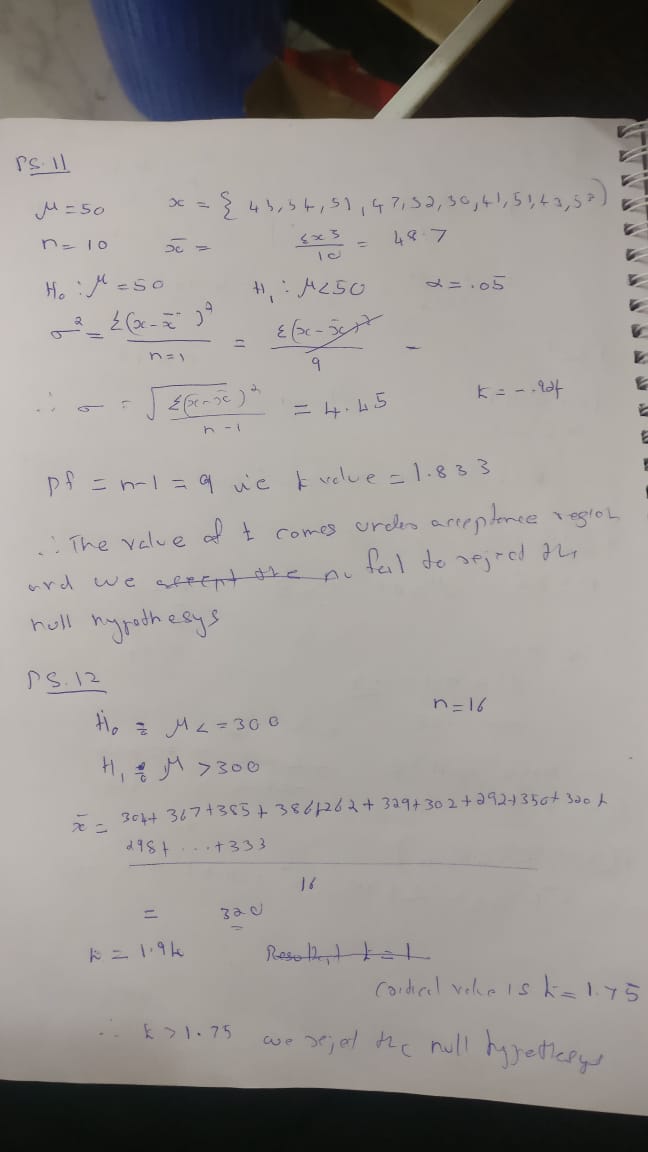 PS.11
μ = 50 x = { 43, 54, 51, 47, 52, 50, 41, 51, 43, 55 }
n = 10 x̄ = Σx3 / 10 = 48.7
H₀ : μ = 50 H₁ : μ < 50 α = .05
σ² = Σ(x - x̄)² / n=1 = Σ(x - x̄)² / 9 -
∴ σ = √ Σ(x - x̄)² / n-1 = 4.45 t = -.924
Df = n-1 = 9 t value = 1.833
∴ The value of t comes under acceptance region
and we accept the fail to reject the
null hypothesys
PS.12
H₀ : μ <= 300 n = 16
H₁ : μ > 300
x̄ = 304 + 367 + 385 + 386 + 262 + 329 + 302 + 292 + 350 + 320 +
298 + ... + 333
16
= 320
t = 1.94 t = 1
Critical value is t = 1.75
∴ t > 1.75 we reject the null hypothesys